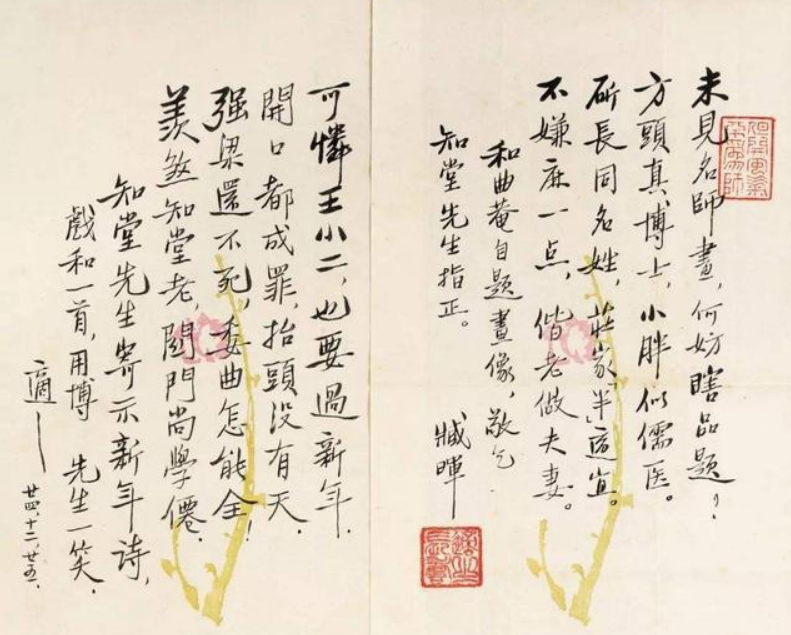 但開風氣
不為師
未見名師畫，何妨瞎品題？
方頭真博士，小胖似儒医。
斫長同名姓，莊家「半」適宜。
不嫌麻一点，偕老做夫妻。
和曲菴自題畫像，敬乞
知堂先生指正。
臧暉
可憐王小二，也要過新年.
開口都成罪，抬頭没有天.
强梁還不死，委曲怎能全！
羨煞知堂老，關門尚學僊.
知堂先生寄示新年詩，
戲和一首，用博 先生一笑.
適
廿四、十二、廿五、